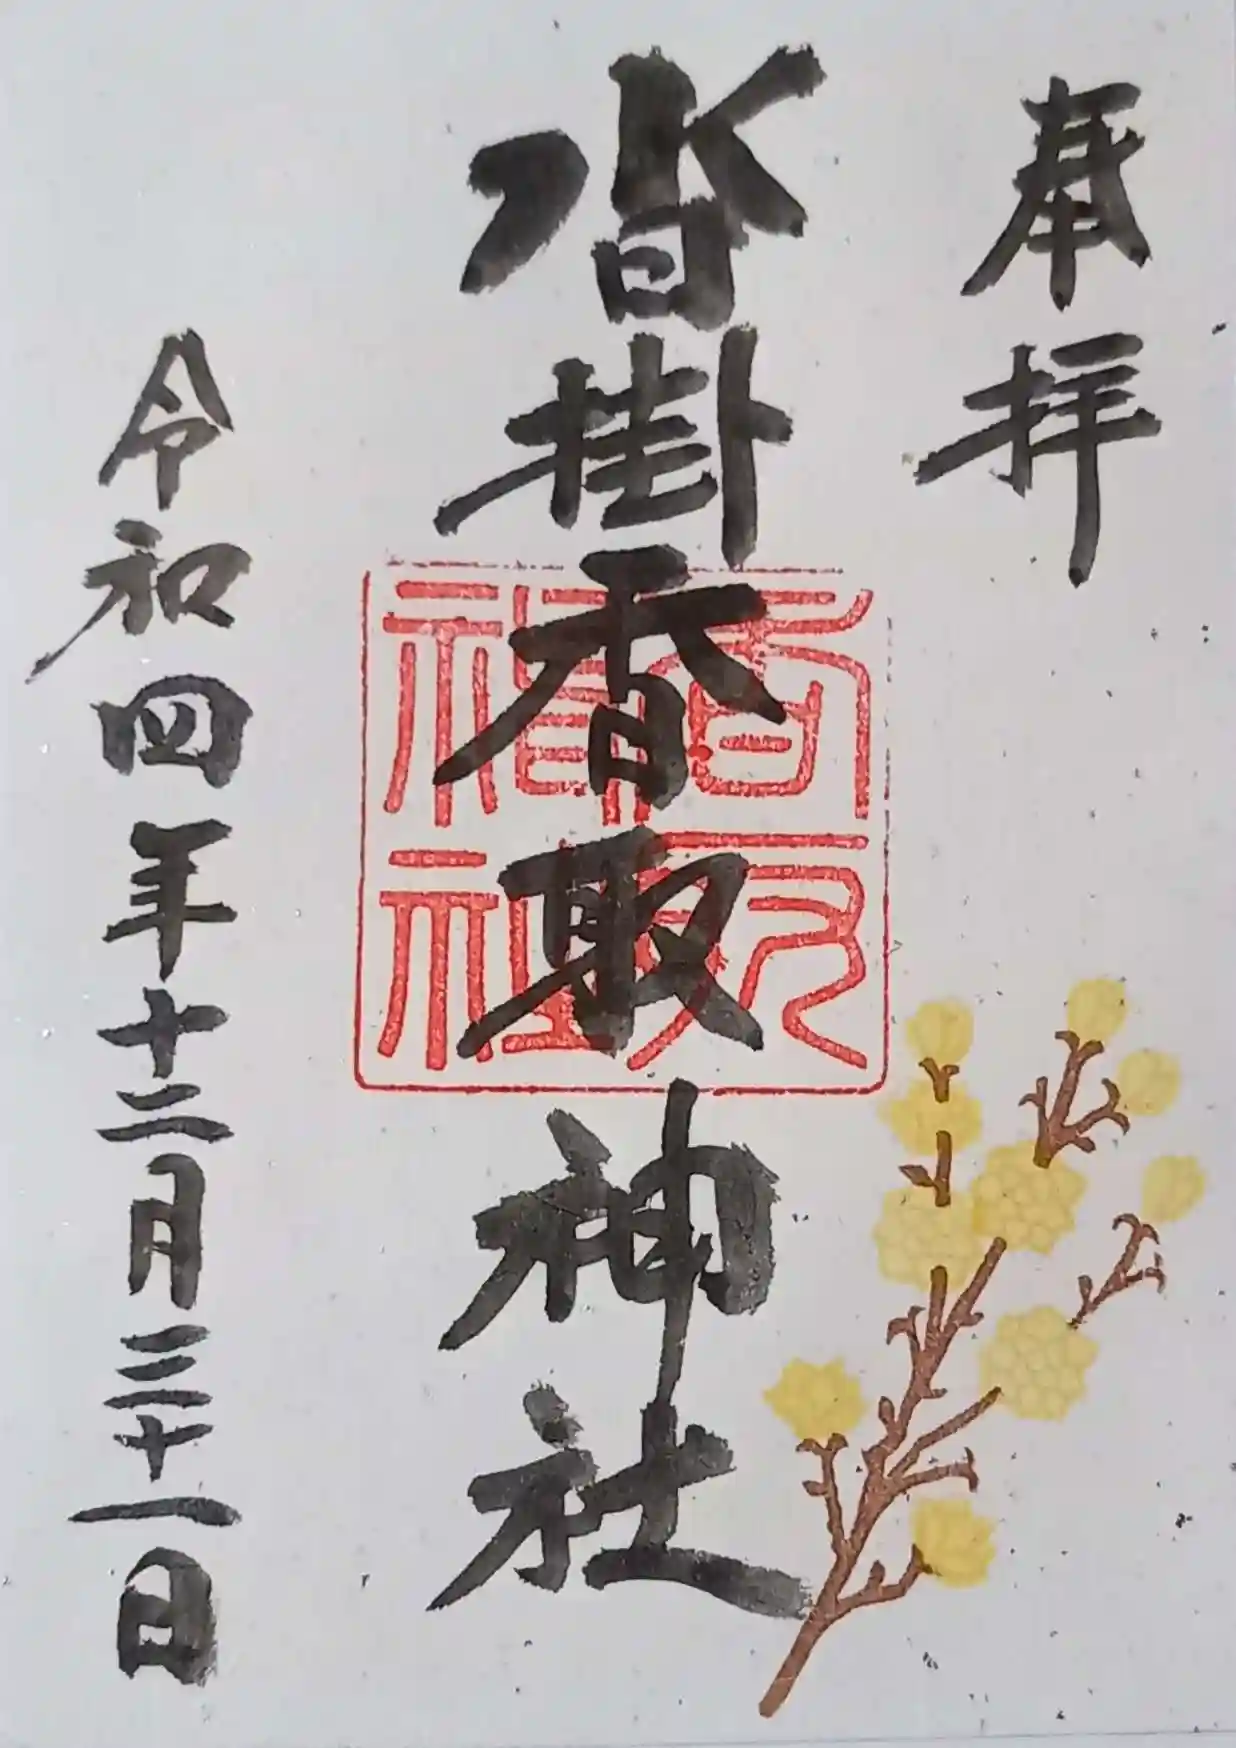 奉拝
沓掛香取神社
香取神社
令和四年十二月三十一日